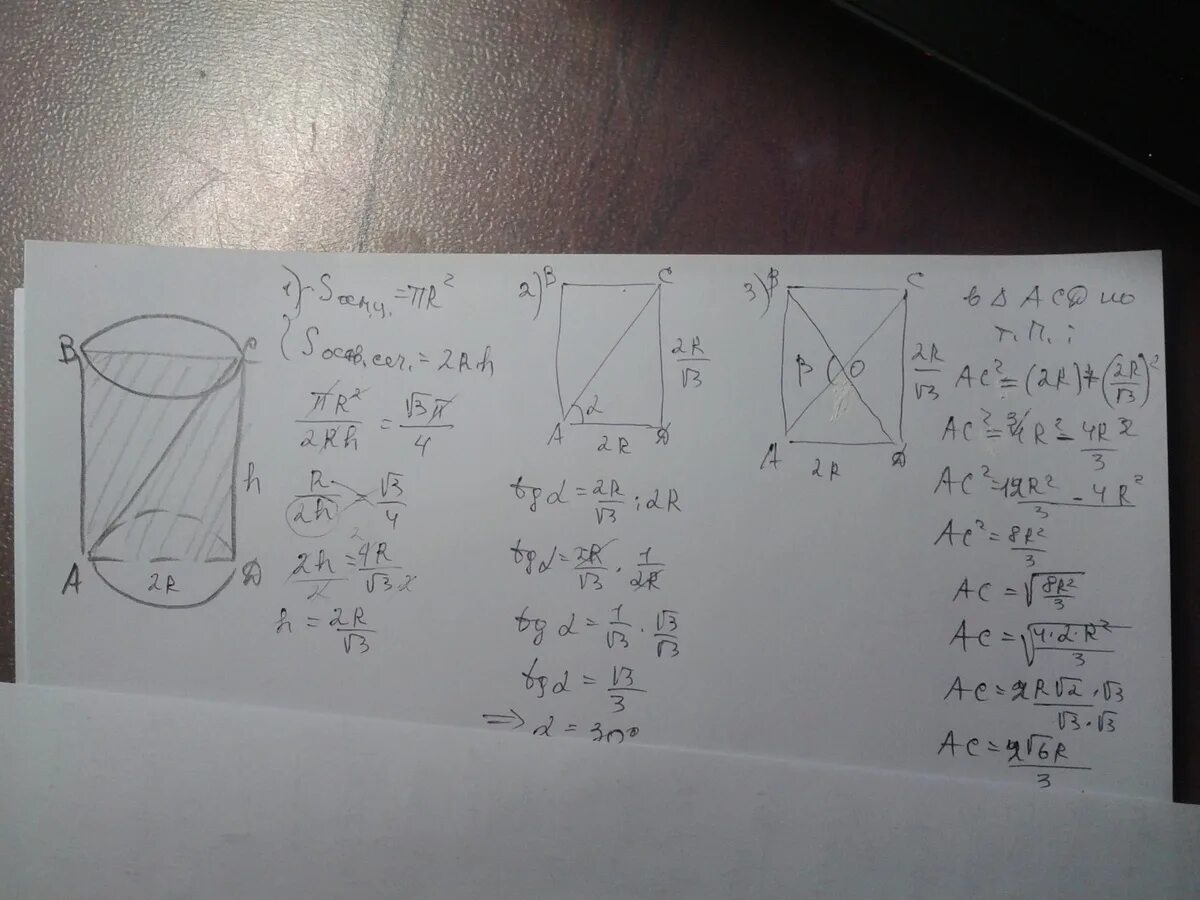 B
C
h
A
2R
D
1) Sосн.ц. = πR²
Sосев.сеч. = 2R·h
πR²/2Rh = √3π/4
R/2h = √3/4
2h/2 = 4R/√3·2
h = 2R/√3
2) B C
2R/√3
α
A 2R D
tg α = 2R/√3 : 2R
tg α = 2R/√3 · 1/2R
tg α = 1/√3 · √3/√3
tg α = √3/3
⇒ α = 30°
3) B C
β O
2R/√3
A 2R D
в Δ ACD по
т.П.:
AC² = (2R)² + (2R/√3)²
AC² = 4R² - 4R²/3
AC² = 12R² - 4R²/3
AC² = 8R²/3
AC = √8R²/3
AC = √4·2·R²/3
AC = 2R√2·√3/√3·√3
AC = 2√6R/3